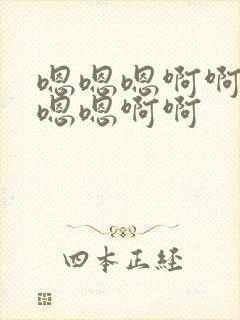 嗯嗯嗯啊啊
嗯嗯啊啊
四本正経